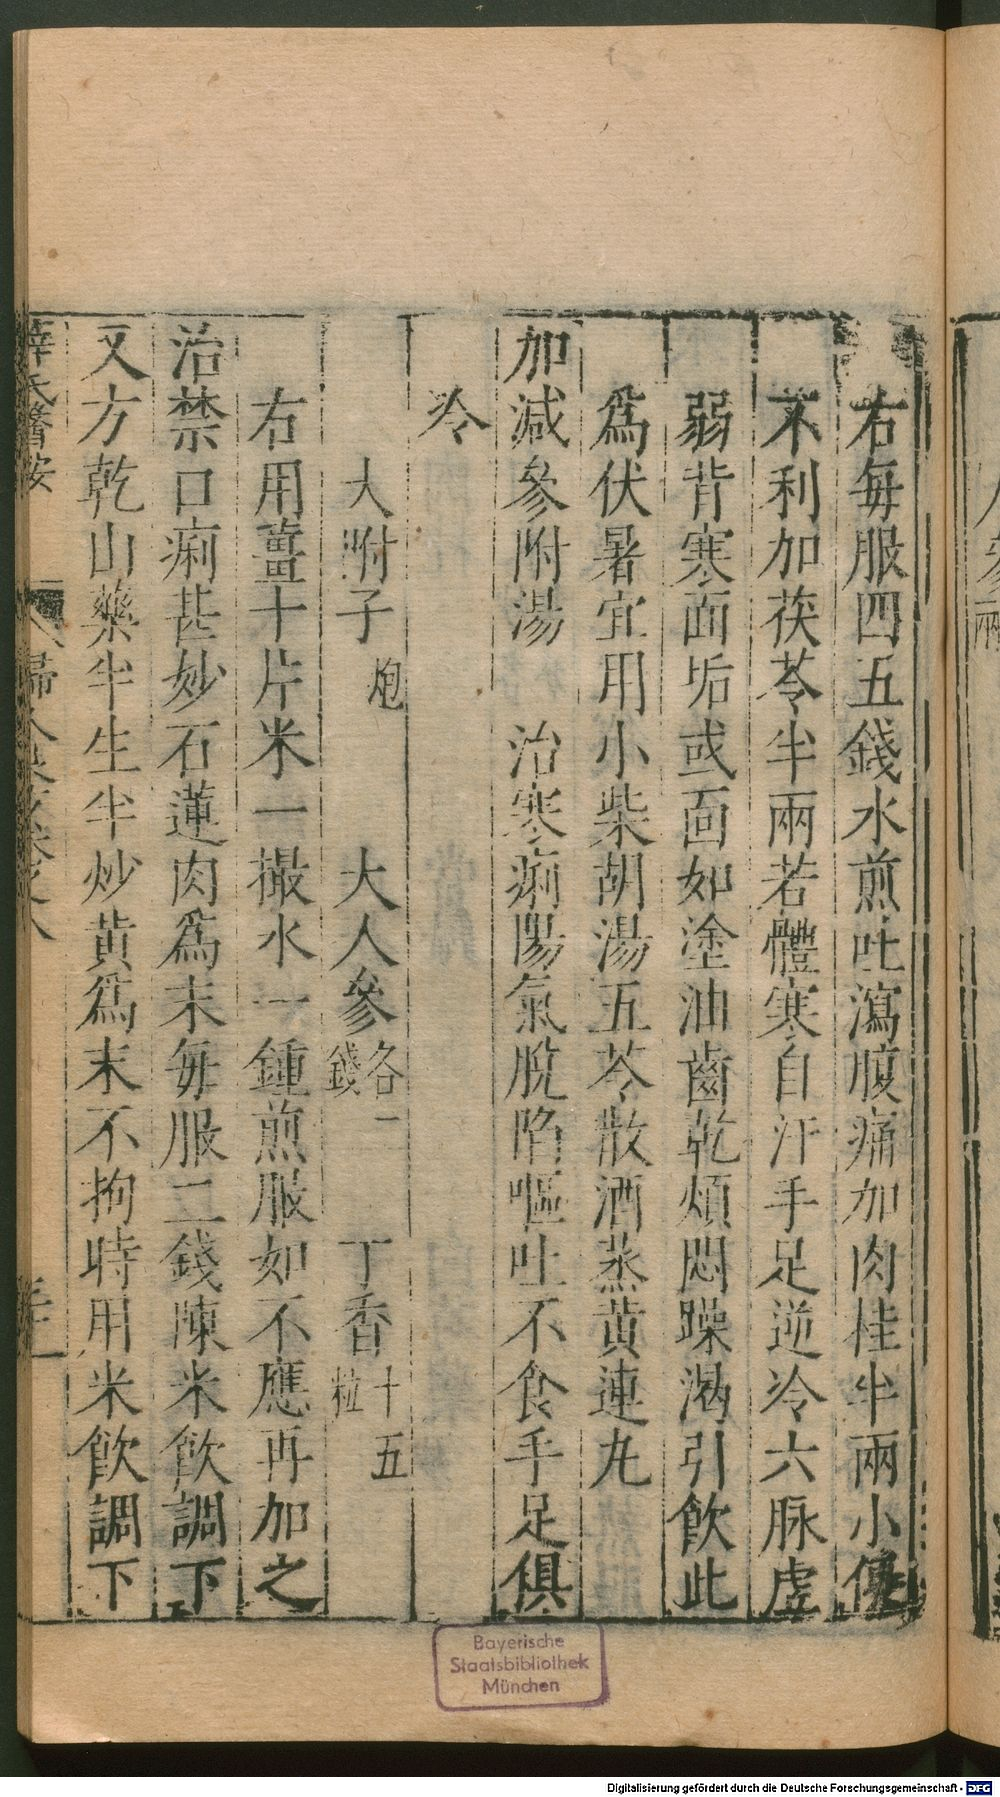 右毎服四五錢水煎吐瀉腹痛加肉桂半兩小便
不利加茯苓半兩若體寒自汗手足逆冷六脉虛
弱背寒面垢或面如塗油齒乾煩悶躁渴引飲此
爲伏暑宜用小柴胡湯五苓散酒蒸黃連丸
加減參附湯　治寒痢陽氣脫陷嘔吐不食手足俱
冷
大附子炮　大人參各二錢　丁香十五粒
右用薑十片米一撮水一鍾煎服如不應再加之
治禁口痢甚妙石蓮肉爲末毎服二錢陳米飲調下
又方乾山藥半生半炒黃爲末不拘時用米飲調下
薛氏醫按
Bayerische
Staatsbibliothek
München
Digitalisierung gefördert durch die Deutsche Forschungsgemeinschaft - DFG